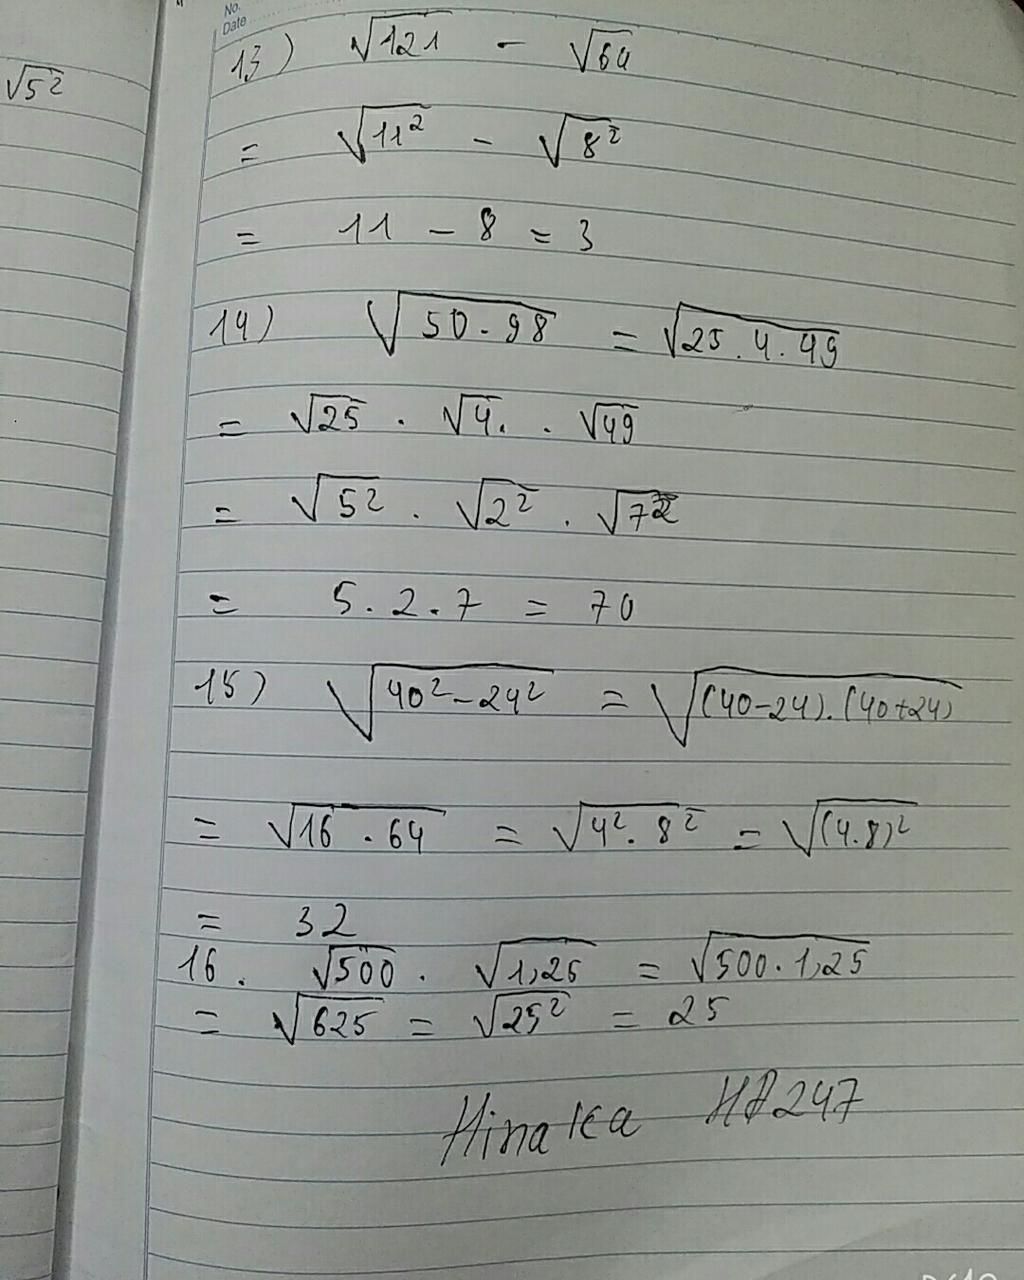 No.
Date
√5²
13) √121 - √64
= √11² - √8²
= 11 - 8 = 3
14) √50.98 = √25.4.49
= √25 . √4. . √49
= √5² . √2² . √7²
= 5.2.7 = 70
15) √40²-24² = √(40-24).(40+24)
= √16.64 = √4².8² = √(4.8)²
= 32
16. √500 . √1,25 = √500.1,25
= √625 = √25² = 25
HA247